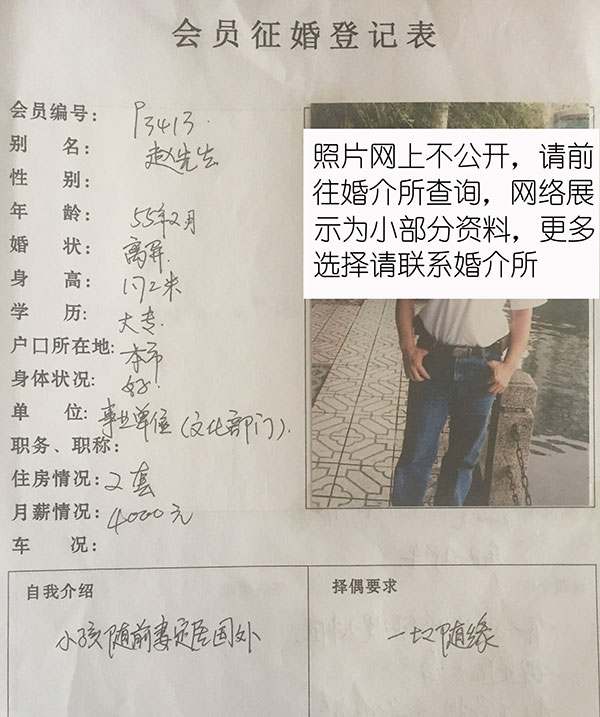 会员征婚登记表
会员编号: P3413.
别 名: 赵先生
性 别:
年 龄: 55年2月
婚 状: 离异.
身 高: 1.72米
学 历: 大专.
户口所在地: 本市
身体状况: 好!
单 位: 事业单位(文化部门).
职务、职称:
住房情况: 2套
月薪情况: 4000元
车 况:
照片网上不公开，请前
往婚介所查询，网络展
示为小部分资料，更多
选择请联系婚介所
自我介绍
小孩随前妻定居国外
择偶要求
一切随缘